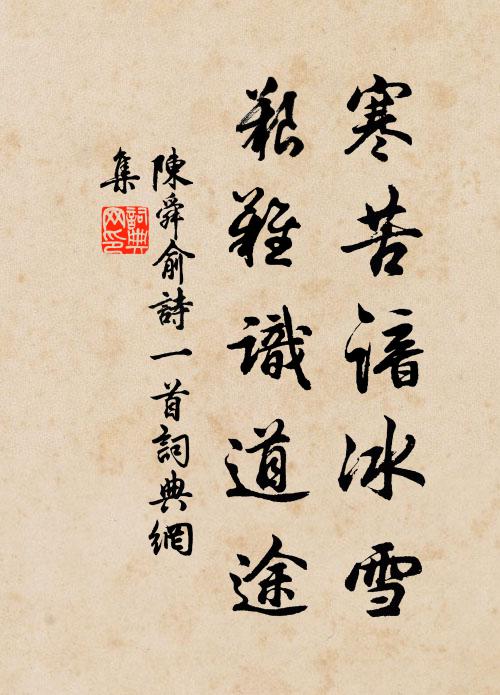 寒苦諳冰雪
艱難識道途
陳舜俞詩一首詞典網
集
詞典
网印